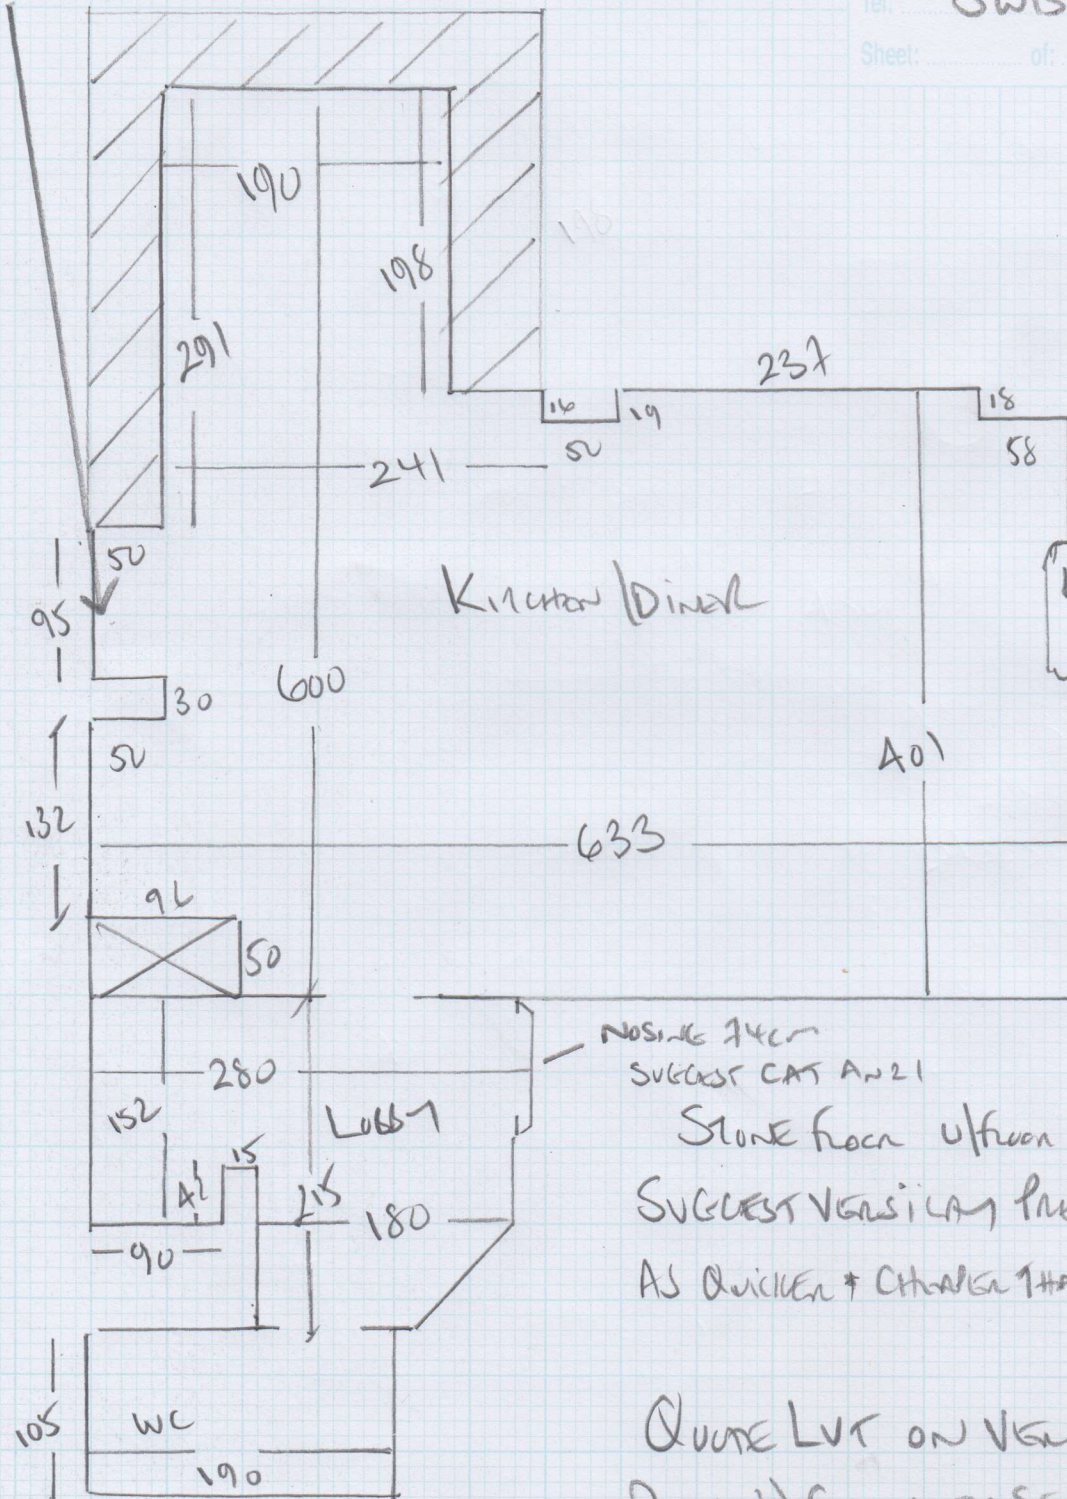 Tel:
Sheet: of:
190
198
190
291
237
16
19
18
50
58
241
50
95
KITCHEN/DINER
30
600
50
401
132
633
50
NOSING 74cm
280
SUGGEST CAT AN21
152
LOBBY
STONE FLOOR U/FLOOR
15
215
180
SUGGEST VERSILAY
90
AS QUICKER + CHEAPER
105
WC
QUOTE LVT ON
190